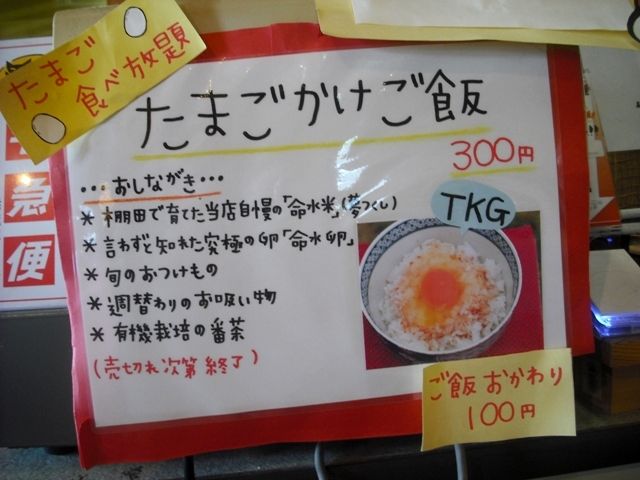 たまご
食べ放題
たまごかけご飯
300円
…おしながき…
* 棚田で育てた当店自慢の「命水米」(夢つくし)
* 言わずと知れた究極の卵「命水卵」
* 旬のおつけもの
* 週替わりのお吸い物
* 有機栽培の番茶
(売切れ次第終了)
TKG
ご飯おかわり
100円
急
便